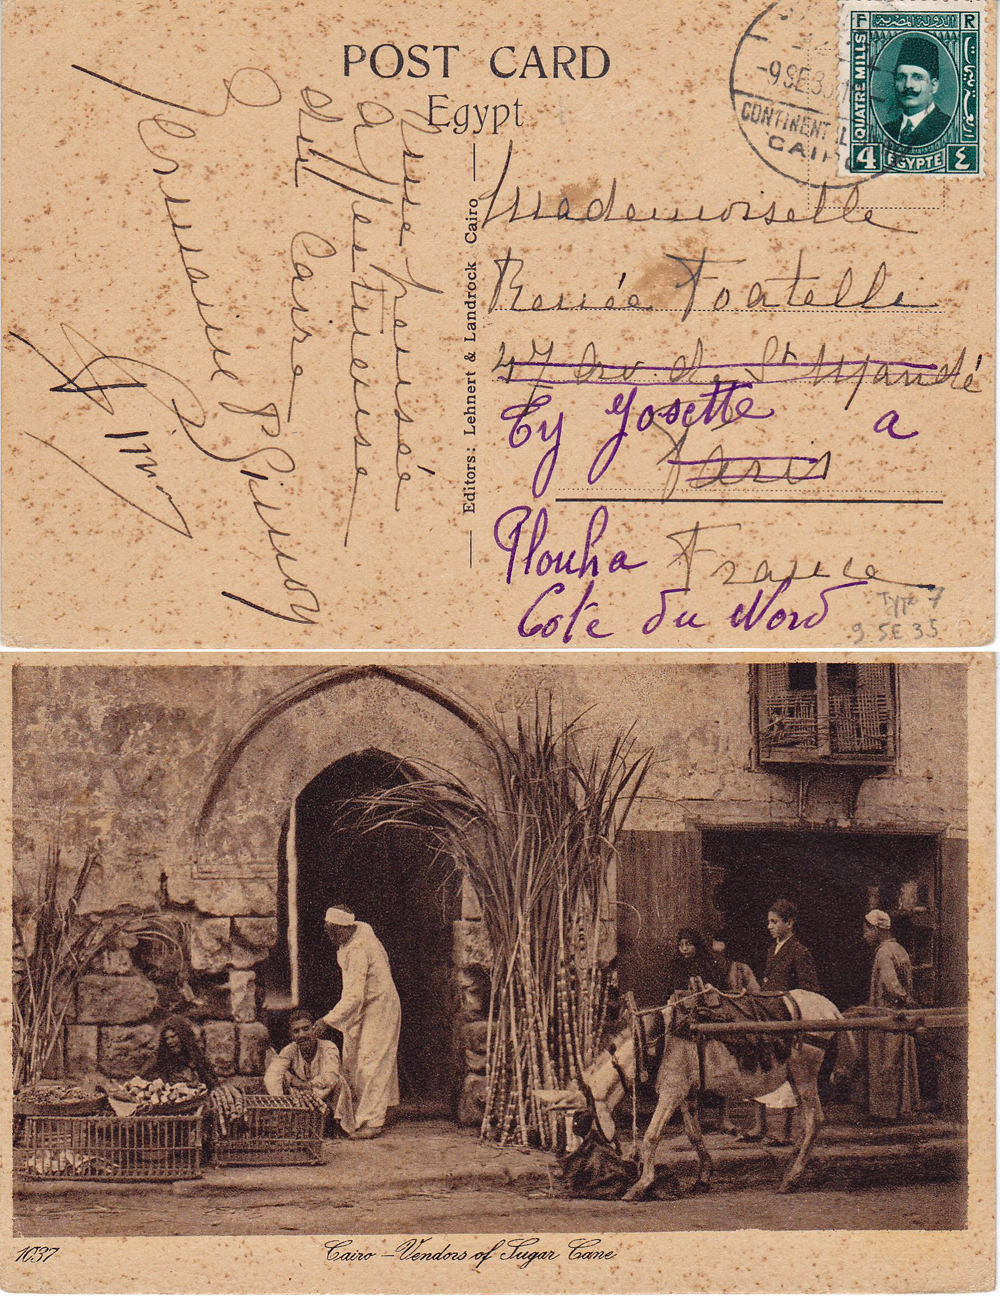 POST CARD
Egypt
F R
الدولة المصرية
QUATRE MILLS
4 EGYPTE ٤
-9 SE 35
CONTINENTAL
CAIRO
Une pensée
affectueuse
du Caire
Germaine
Editors: Lehnert & Landrock Cairo
Mademoiselle
Renée Foatelli
47 Av. de St Mandé
Ty Josette a
Paris
Plouha France
Cote du Nord
Type 7
9 SE 35
1037 Cairo – Vendors of Sugar Cane